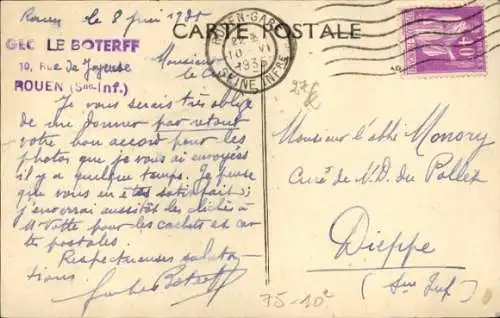 Rouen le 8 juin 1935
CARTE POSTALE
GEO LE BOTERFF
10, Rue de Joyeuse
ROUEN (Sne Inf.)
ROUEN-GARE
10 VI
1935
SEINE INFRE
Monsieur
le Curé
Je vous serais très obligé
de me donner par retour
votre bon accord pour les
photos que je vous ai envoyées
il y a quelque temps. Je pense
que vous en êtes satisfait;
j'enverrai aussitôt les clichés à
Mr Votte pour les cachets et car
tes postales.
Respectueuses saluta-
tions.
Monsieur l'abbé Monory
Curé de N.D. du Pollet
Dieppe
(Sne Inf)
75-10²